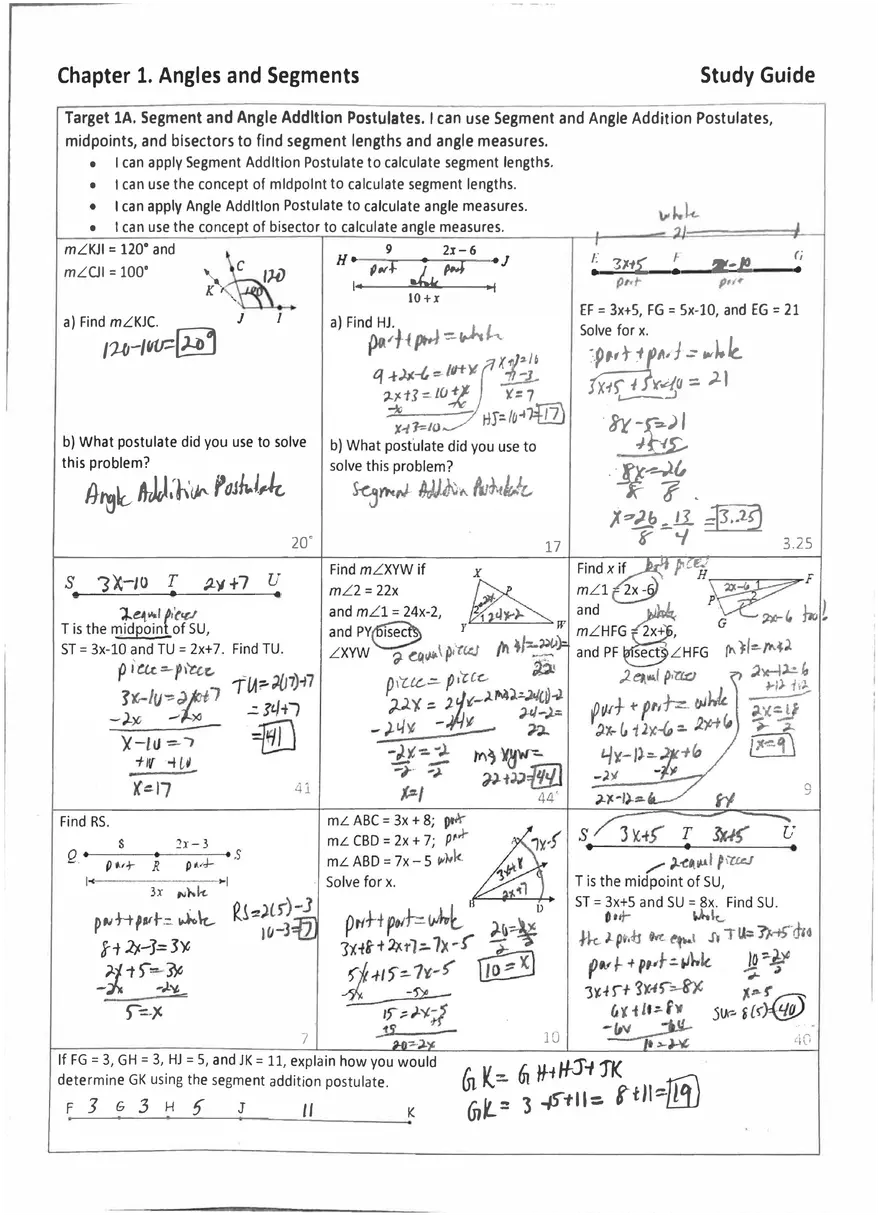 Chapter 1. Angles and Segments Study Guide
Target 1A. Segment and Angle Addition Postulates. I can use Segment and Angle Addition Postulates,
midpoints, and bisectors to find segment lengths and angle measures.
• I can apply Segment Addition Postulate to calculate segment lengths.
• I can use the concept of midpoint to calculate segment lengths.
• I can apply Angle Addition Postulate to calculate angle measures.
• I can use the concept of bisector to calculate angle measures.
m∠KJI = 120° and
m∠CJI = 100°
C
120
K
100
J I
a) Find m∠KJC.
120-100=20°
b) What postulate did you use to solve
this problem?
Angle Addition Postulate
20°
9 2x – 6
H J
part part
whole
10 + x
a) Find HJ.
part+part=whole
9+2x-6=10+x
2x+3=10+x
-x -x
x+3=10
x+3=10
-3 -3
x=7
HJ=10+7=17
b) What postulate did you use to
solve this problem?
Segment Addition Postulate
17
whole
21
E 3x+5 F 5x-10 G
part part
EF = 3x+5, FG = 5x-10, and EG = 21
Solve for x.
part+part=whole
3x+5+5x-10=21
8x-5=21
+5+5
8x=26
8 8
x=26=13=3.25
8 4
3.25
S 3x-10 T 2x+7 U
2 equal pieces
T is the midpoint of SU,
ST = 3x-10 and TU = 2x+7. Find TU.
piece=piece
3x-10=2x+7
-2x -2x
x-10=7
+10 +10
x=17
TU=2(17)+7
=34+7
=41
41
Find m∠XYW if
m∠2 = 22x
and m∠1 = 24x-2,
and PY bisects
∠XYW
X
P
2 22x
1 24x-2
Y W
2 equal pieces
piece=piece
22x=24x-2
-24x -24x
-2x=-2
-2 -2
x=1
22
m∠2=24(1)-2
24-2=
22
m∠XYW=
22+22=44
44°
Find x if
m∠1 = 2x -6
and
m∠HFG = 2x+6,
and PF bisects ∠HFG
both pieces
whole
H F
2x-6 1
P 2
G
2x-6 too!
2 equal pieces
m∠1=m∠2
part+part=whole
2x-6+2x-6=2x+6
4x-12=2x+6
-2x -2x
2x-12=6
2x-12=6
+12 +12
2x=18
2 2
x=9
9
Find RS.
8 2x – 3
Q R S
part part
3x whole
part+part=whole
8+2x-3=3x
2x+5=3x
-2x -2x
5=x
RS=2(5)-3
10-3=7
7
m∠ ABC = 3x + 8; part
m∠ CBD = 2x + 7; part
m∠ ABD = 7x – 5 whole
Solve for x.
A 7x-5
3x+8 C
2x+7
B D
part+part=whole
3x+8+2x+7=7x-5
5x+15=7x-5
-5x -5x
15=2x-5
+5 +5
20=2x
20=2x
2 2
10=x
10
S 3x+5 T 3x+5 U
2 equal pieces
T is the midpoint of SU,
ST = 3x+5 and SU = 8x. Find SU.
part whole
the 2 parts are equal so TU=3x+5 too
part+part=whole
3x+5+3x+5=8x
6x+10=8x
-6x -6x
10=2x
10=2x
2 2
x=5
SU=8(5)=40
40
If FG = 3, GH = 3, HJ = 5, and JK = 11, explain how you would
determine GK using the segment addition postulate.
F 3 G 3 H 5 J 11 K
GK=GH+HJ+JK
GK=3+5+11=8+11=19